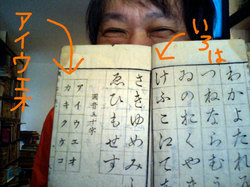 いろは
アイウエオ
わかよたれ
つねならむ
ゐのおくやま
けふこえて
さきゆめみし
ゑひもせす
五十字
アイウエオ
カキクケコ